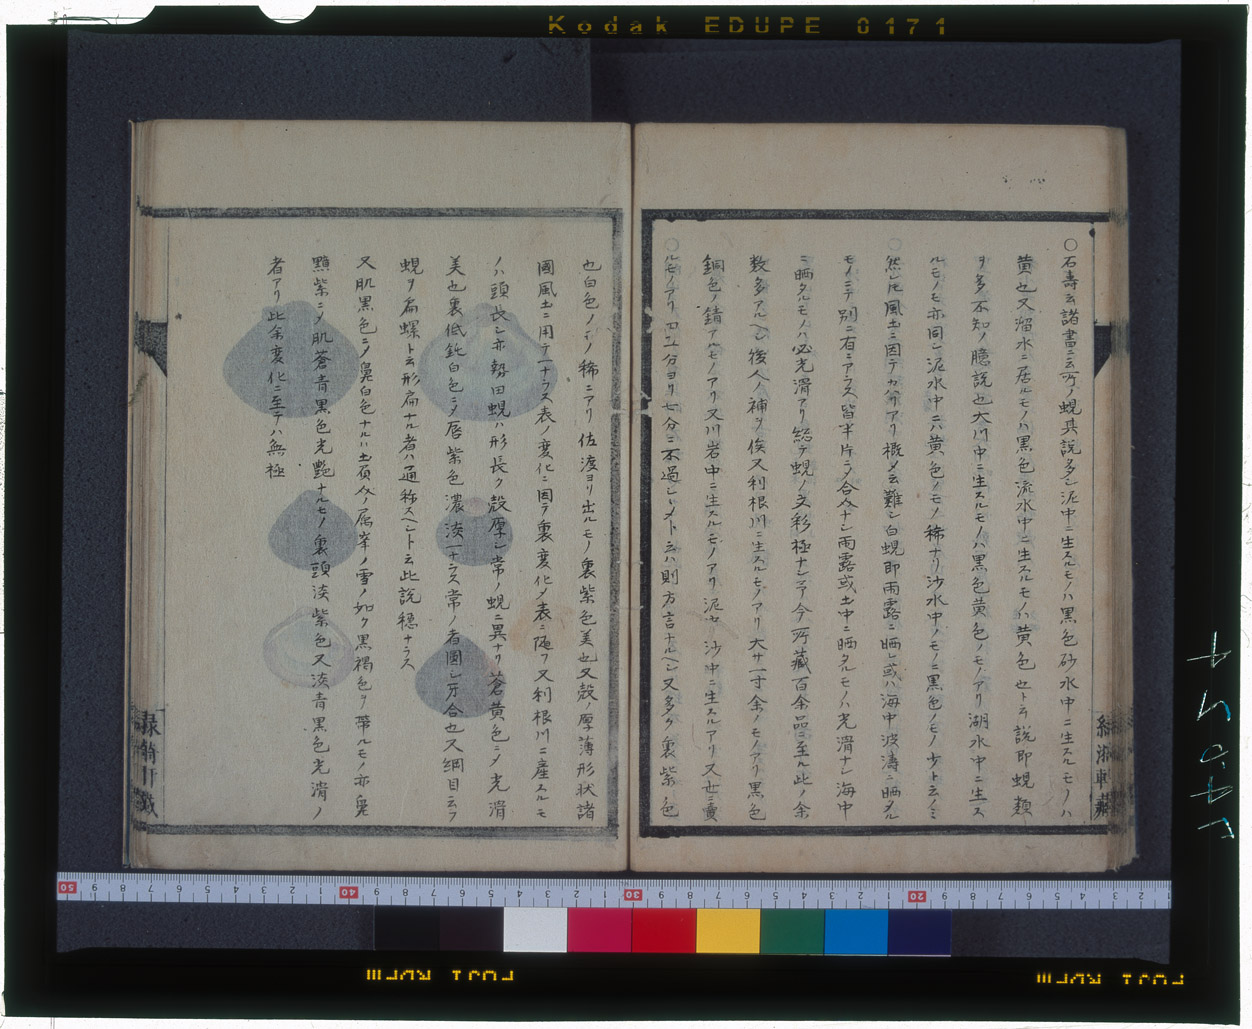 Kodak EDUPE 0171
〇石壽云諸書ニ云所ノ蜆其説多シ泥中ニ生スルモノハ黒色砂水中ニ生スルモノハ
黄也又溜水ニ居ルモノハ黒色流水中ニ生スルモノハ黄色也ト云説即蜆類
ヲ多不知ノ臆説也大川中ニ生スルモノハ黒色黄色ノモノアリ湖水中ニ生ス
ルモノモ亦同シ泥水中ニハ黄色ノモノ稀ナリ沙水中ノモノニ黒色ノモノ少ト云ノミ
〇然レ𪜈風土ニ因テカハリアリ概メ云難シ白蜆即雨露ニ晒シ或ハ海中波濤ニ晒タル
モノニテ別ニ有ニアラス皆半片ニメ合タナシ雨露或土中ニ晒タルモノハ光滑ナシ海中
ニ晒タルモノハ必光滑アリ総テ蜆ノ文彩極ナシ予今所蔵百余品ニ至ル此ノ余
数多アルヘシ後人ノ補ヲ俟又利根川ニ生スルモノアリ大サ一寸余ノモノアリ黒色
銅色ノ錆アルモノアリ又川岩中ニ生スルモノアリ泥 沙中ニ生スルアリ又世ニ賣
〇ルモノアリ四五分ヨリ七分ニ不過シメト云ハ則方言ナルヘシ又多ク裏紫色
也白色ノモノ稀ニアリ佐渡ヨリ出ルモノ裏紫色美也又殻ノ厚薄形状諸
國風土ニ用テ一ナラス表ノ変化ニ因テ裏変化メ表ニ随フ又利根川ニ産スルモ
ノハ頭長シ亦勢田蜆ハ形長ク殻厚シ常ノ蜆ニ異ナリ蒼黄色ニメ光滑
美也裏低鈍白色ニメ唇紫色濃淡一ナラス常ノ者圓シ牙合也又綱目ニ云フ
蜆ヲ扁螺ト云形扁ナル者ハ通称スヘシト云此説穏ナラス
又肌黒色ニメ鼻白色ナルハ土質 ノ属峯ノ雪ノ如ク黒褐色ヲ帯ルモノ亦鼻
黯紫ニメ肌蒼青黒色光艶ナルモノ裏頭淡紫色又淡青黒色光滑ノ
者アリ此余変化ニ至テハ無極
FUJI RDPIII
FUJI RDPIII